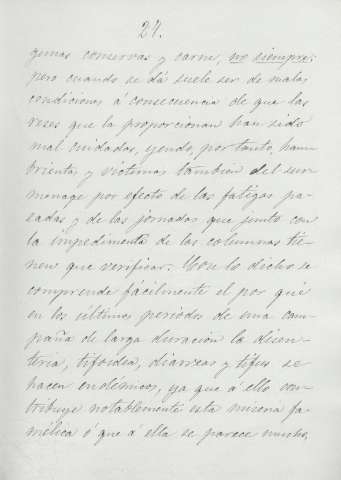 27.
gunas conservas y carne, no siempre;
pero cuando se dá suele ser de malas
condiciones á consecuencia de que las
reses que la proporcionan han sido
mal cuidadas, yendo, por tanto, ham-
brientas y víctimas tambien del sur-
menage por efecto de las fatigas pa-
sadas y de las jornadas que junto con
la impedimenta de las columnas tie-
nen que verificar. Con lo dicho se
comprende fácilmente el por qué
en los últimos periodos de una cam-
paña de larga duracion la disen-
teria, tifoidea, diarreas y tifus se
hacen endémicos, ya que á ello con-
tribuye notablemente esta miseria fa-
mélica ó que á ella se parece mucho,